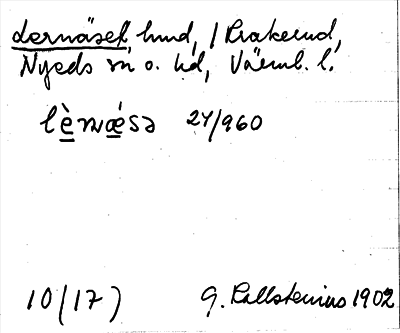 Lernäset, hmd, / Krakerud,
Nyeds sn o. hd, Värml. l.
lè̠rnǽ̠sə 24/960
10(17) G. Kallstenius 1902